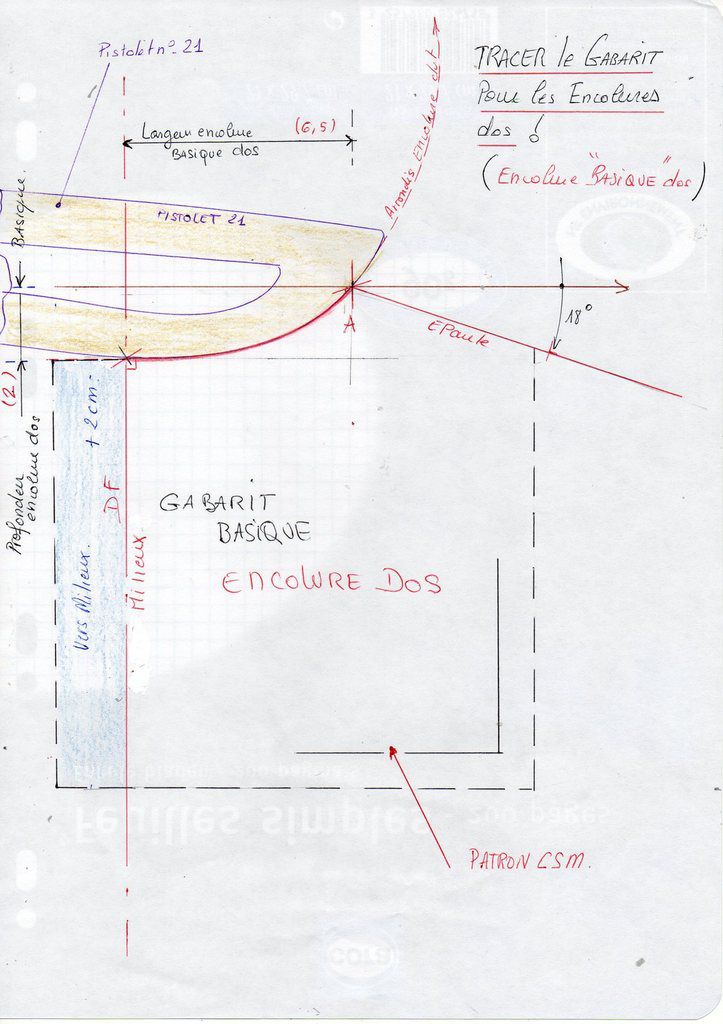 Pistolet n° 21
TRACER le GABARIT
Pour les Encolures
dos !
(Encolure "BASIQUE" dos)
Largeur encolure (6,5)
BASIQUE dos
Arrondis Encolure dot
BASIQUE.
PISTOLET 21
A
EPaule
18°
(2)
Profondeur
encolure dos
+ 2cm.
Vers Milieux.
DF
Milieux
GABARIT
BASIQUE
ENCOLURE DOS
PATRON CSM.
Feuilles simples
cora